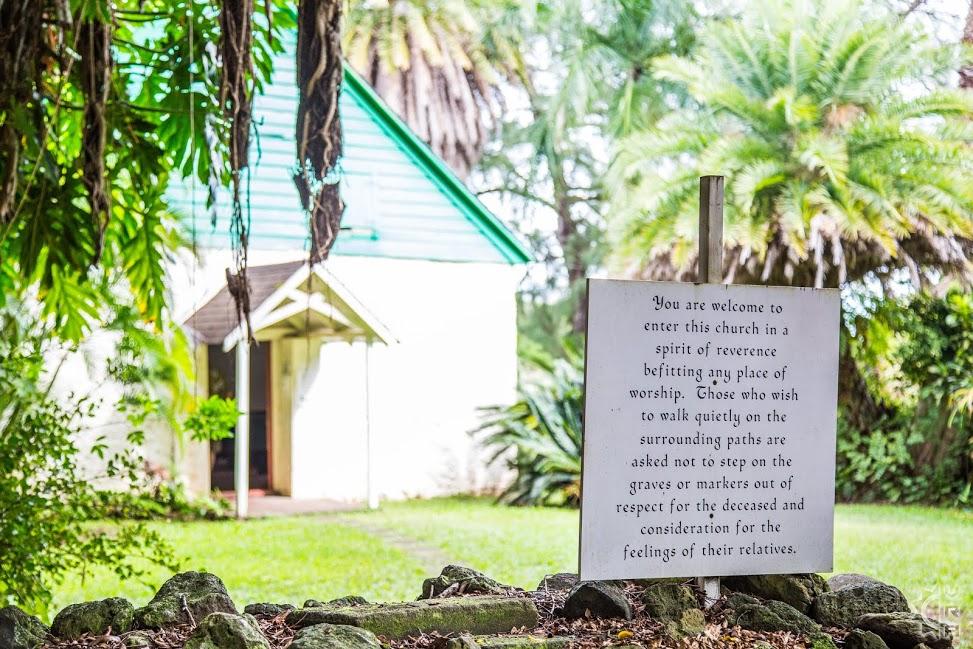 You are welcome to
enter this church in a
spirit of reverence
befitting any place of
worship. Those who wish
to walk quietly on the
surrounding paths are
asked not to step on the
graves or markers out of
respect for the deceased and
consideration for the
feelings of their relatives.